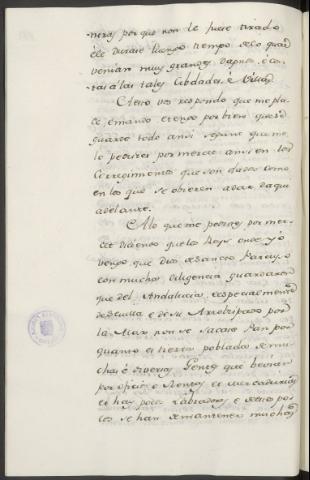 neras por que non le fuese tirado
è se durase luengo tiempo se lo guar
venian muy grandes daños, è cos
tas à las tales Cibdades, è Villas
A esto vos respondo que me pla
ce è mando è tengo por bien que se
guarde todo ansi segunt que me
lo pedistes por merced ansi en los
Corregimientos que son dados como
en los que se obieren à dar daqui
adelante.
A lo que me pedistes por mer
cet diciendo que los Reys onde yo
vengo que Dios dé Sancto Parayso
con mucha diligencia guardaron
que del Andalucia, especialmente
de Sevilla è de su Arzobispado por
la Mar non se sacase Pan por
quanto es tierra poblada de mu
chas è diversas Gentes que
por oficios è Rentas, et mercadurias
et hay pocos Labradores, è destos po
cos se han de mantener muchos